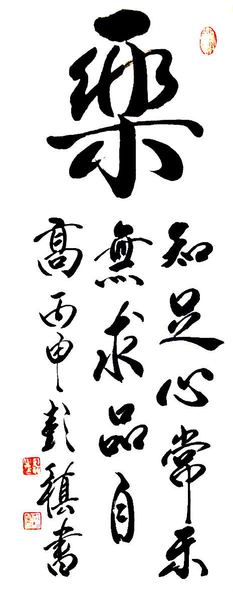 樂
知足心常乐
無求品自
高丙申彭稹書